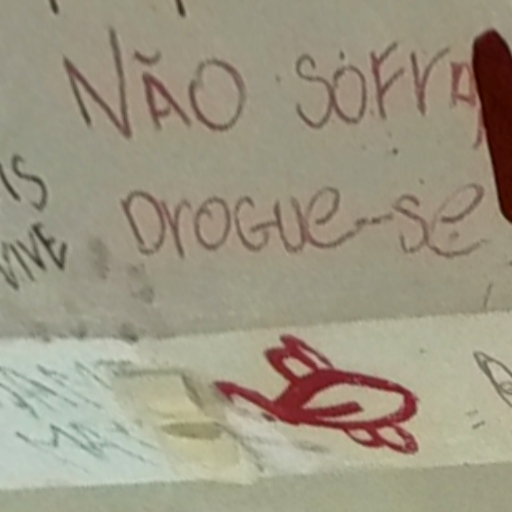 NÃO SOFRA
DROGUE-SE
IS
VIVE